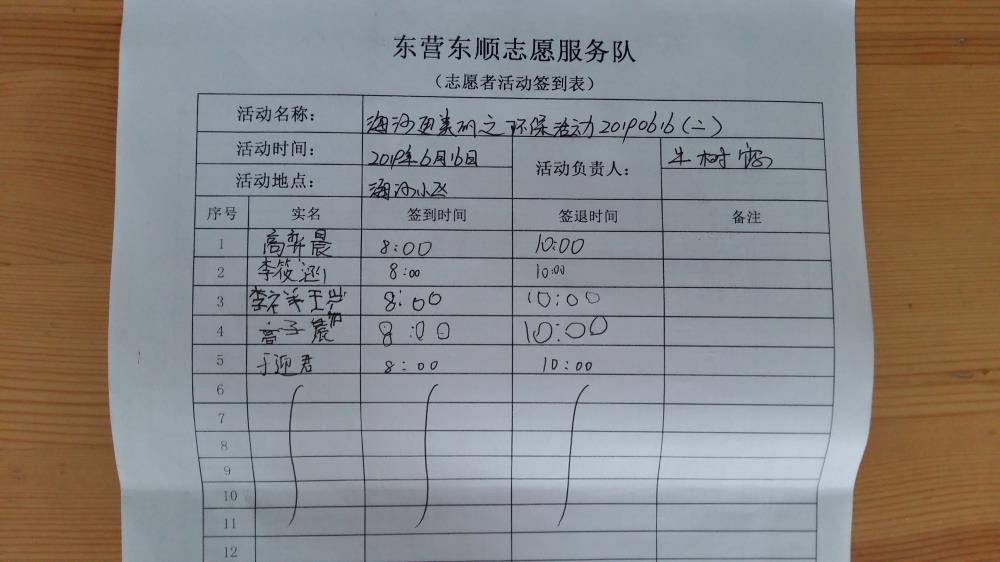 东营东顺志愿服务队
（志愿者活动签到表）
活动名称： 海河更美丽之环保活动20190616（二）
活动时间： 2019年6月16日 活动负责人： 牛树
活动地点： 海河小区
序号 实名 签到时间 签退时间 备注
1 高弈晨 8:00 10:00
2 李筱涵 8:00 10:00
3 8:00 10:00
4 高子晨 8:00 10:00
5 于迎君 8:00 10:00
6
7
8
9
10
11
12